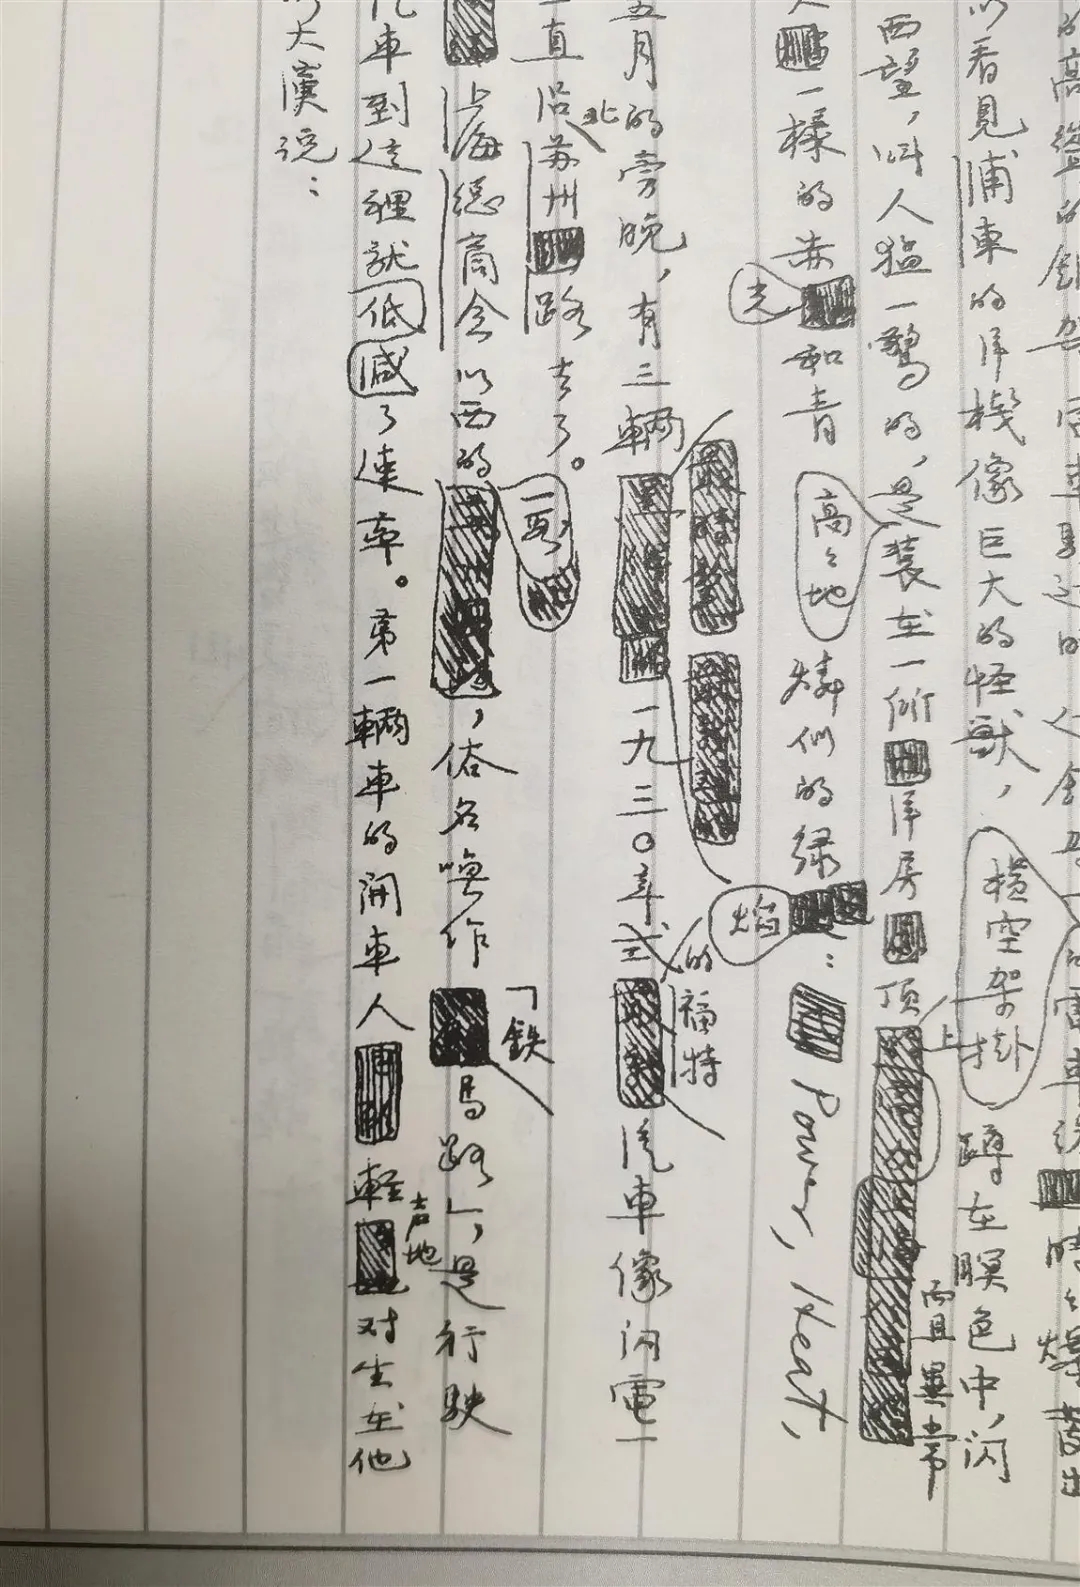 的高聳的鋼架
以看見浦東的洋棧像巨大的怪獸，蹲在暝色中，閃
橫空架掛
西望，叫人猛一驚的，是裝在一所洋房頂
上
高々地
而且異常
一樣的赤光和青燐似的綠焰：Power, Heat,
五月的旁晚，有三輛一九三〇年式的福特汽車像閃電一
一直沿北苏州路去了。
上海總商会以西的一段，俗名喚作「鉄馬路」，是行駛
汽車到这裡就低減了速率。第一輛車的開車人輕声地对坐在他
大漢说：